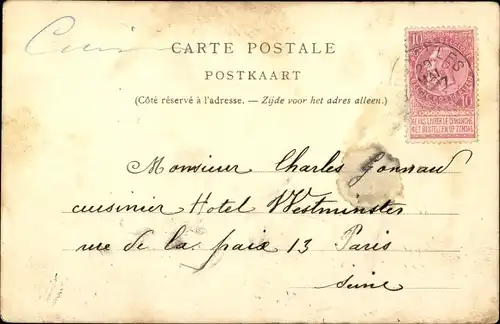 CARTE POSTALE
POSTKAART
(Côté réservé à l'adresse. — Zijde voor het adres alleen.)
10
10
NE PAS LIVRER LE DIMANCHE
NIET BESTELLEN OP ZONDAG
Monsieur Charles
cuisinier Hotel Westminster
rue de la paix 13 Paris
Seine